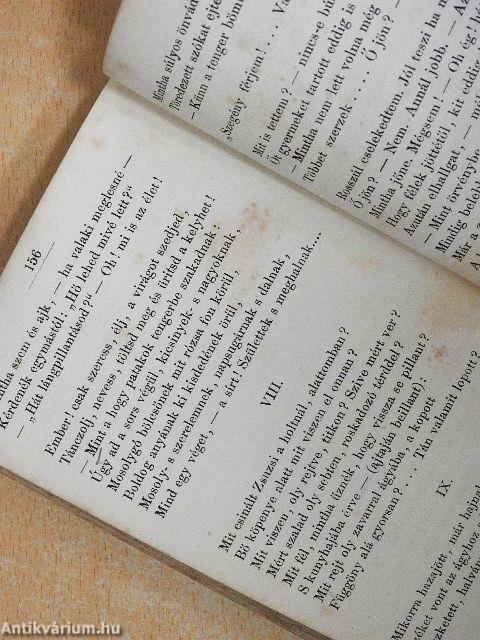 Mintha súlyos önvád
Töredezett szókat ejte
— Künn a tenger bömb
„Szegény férjem!... Vá
Mit is tettem? — nincs-e bű
Öt gyermeket tartott eddig is
— Mintha nem lett volna még
Többet szerzek ..... Ó jön? —
Rosszúl cselekedtem. Jól teszi ha m
Ó jön? — Nem. Annál jobb. — Az
Mintha jőne. Mégsem! — Oh ég!
Hogy félek jöttétől, kit eddig
Azután elhallgat, —
— Mint örvény-be
Mindig beleb
Már a
156
szem és ajk, — ha valaki meglesné —
Kérdenők egymástól: „Hő lebed mivé lett?“
— „Hát lángpillantásod?“ — Oh! mi is az élet!
Ember! csak szeress, élj, a virágot szedjed,
Tánczolj, nevess, töltsd meg és ürítsd a kelyhet!
— Mint a hogy patakok tengerbe szakadnak:
Úgy ad a sors végül, kicsinyek- s nagyoknak,
Mosolygó bölcsőnek mit rózsa fon körül,
Boldog anyának ki kisdedének örül,
Mosoly- s szerelemnek, napsugárnak s dalnak,
Mind egy véget, — a sírt! Születtek s meghalnak....
VIII.
Mit csinált Zsuzsi a holtnál, alattomban?
Bő köpenye alatt mit viszen el onnan?
Mit viszen, oly rejtve, titkon? Szive mért ver?
Mért szalad oly sebten, roskadozó térddel?
Mit fél, mintha űznék, hogy vissza se pillant?
S kunyhajába érve — (ajtaján beillant):
Mit rejt oly zavarral ágyába, a kopott
Függöny alá gyorsan?.... Tán valamit lopott?
IX.
Mikorra hazajött, már hajnal
széket vont az ágyhoz
Antikvárium.hu